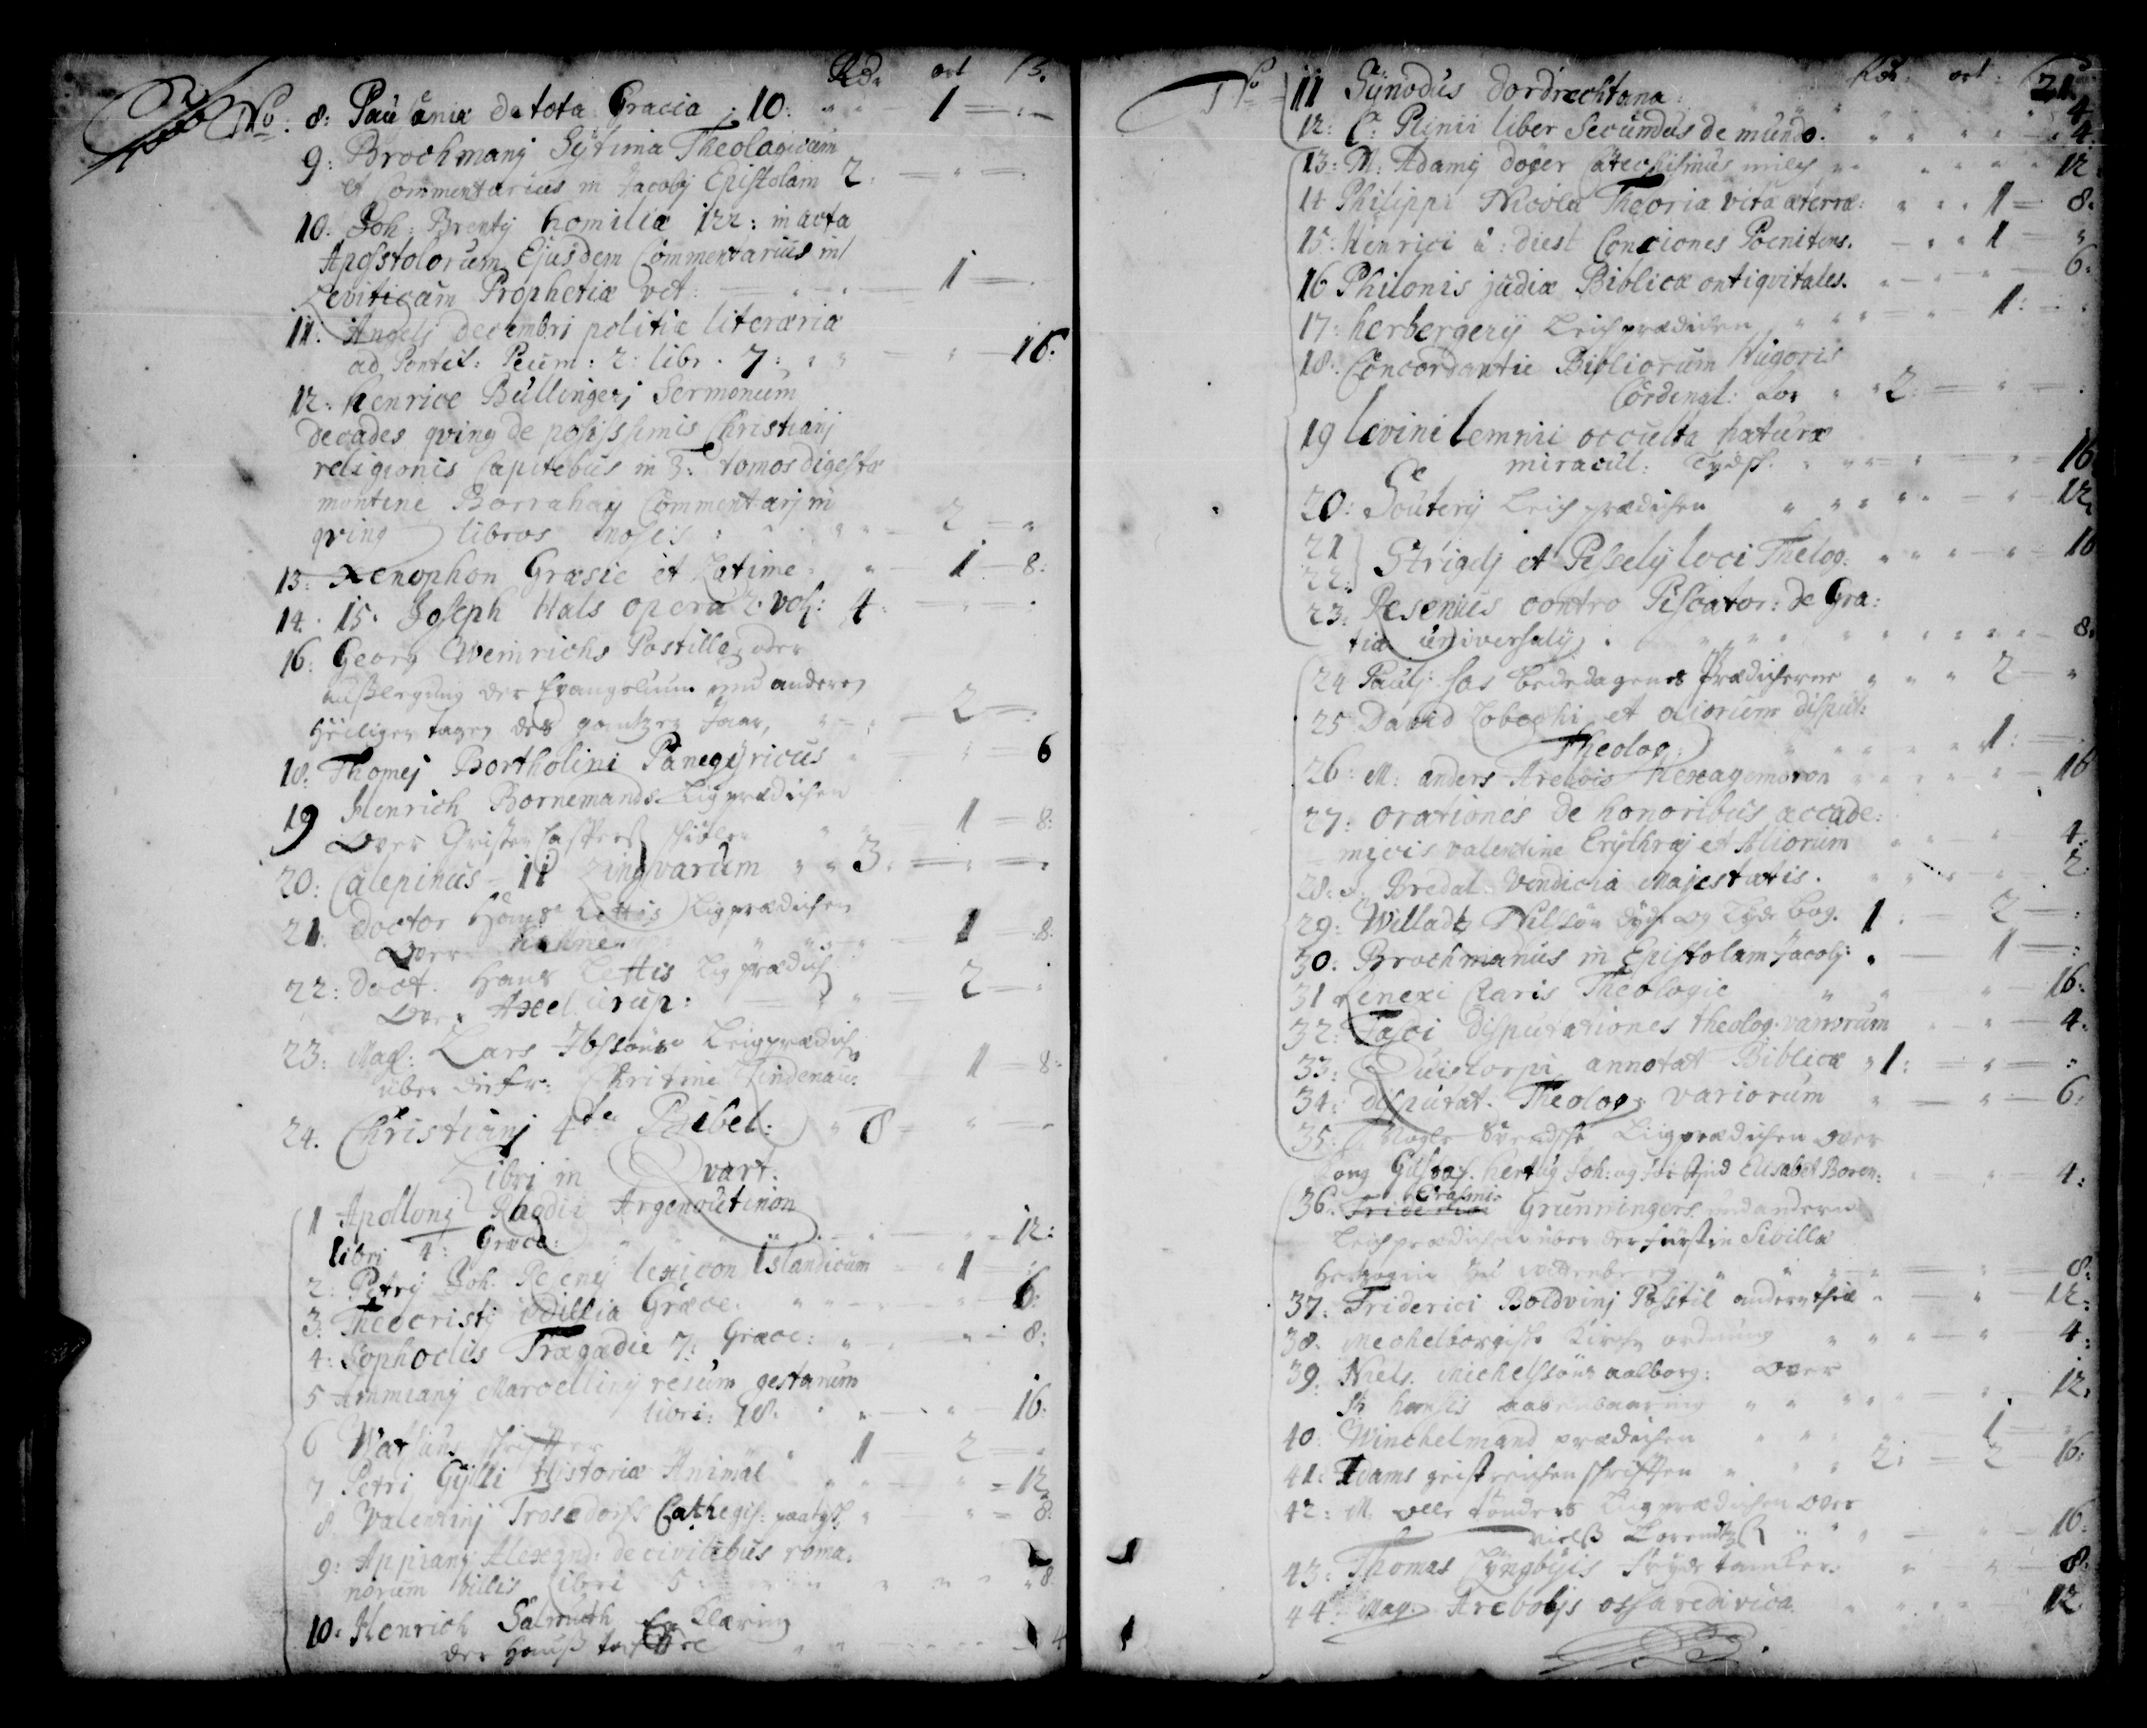 Rdr ort ß.
No. 8: Pausania de tota Gracia ; 10: " " 1 = : -
9: Brochmanj Sÿstima Theologicum
et Commentarius in Jacobj Epistolam 2. = " = :
10: Joh: Brentÿ homiliæ 122: in acta
Apostolorum Ejusdem Commentarius in/
Leviticum Prophetiæ vet: - 1 = .
11: Angelj decembri politiæ literariæ
ad Pontif: Peium: 2: libr. 7: " " - " - 16.
12: henrice Bullingerj Sermonum
decades qving de posissimis Christianj
religionis Capitebus in 3: tomos digestæ
montene Borrahaÿ Commentarj in
qving libros mosis : " " 2 = "
13: Xenophon Græsie et Latine " - 1 - 8:
14. 15. Joseph Hals opera 2. vol: 4: = " = .
16: Georg Weinrichs Postilla, oder
außlegung der Evangelium und anderen
heiligen tagen des gantzen Jaar, " = : = 2 = :
18. Thomej Bortholini Panegÿricus - " = 6
19 Henrich Bornemands Ligprædichen
Over " " - 1 = 8:
20: Calepinus = 11 Lingvarum " " 3. = " = "
21. Doctor Hans Lettis Ligprædichen
Over " " - 1 = 8.
22: Doct. Hans Lettis Ligprædich
Over Axel Urup: = " = 2 = :
23: Mag: Lars Ibssøns Leigprædich
über die fr: Christine Lindenau: 1 = 8:
24. Christianj 4te Bibel: " 8 = " = "
Libri in Qvart:
1 Apollonj Rhodii Argenoutinon
libri 4: Græce: " " " - " = 12:
2: Petrj Joh. Reseny lexicon Islandicum = " 1 = :
3: Theocristj idillia Græce. " " " - 6:
4: Sophoclis Trægædie 7: Græce: " " - 8:
5 Ammianj Marcellinj resum gestarum
libri: 18. " " - " - 16:
6 schriffter " " 1 2 = "
7 Petri Gÿlli Historiæ Animal " " = " = 12
8. Valentinj Trosedorfs Cathegis: " " = 8:
9: Appianj Alexand: de civilibus roma.
norum billis libri 5 " " " " 8
10: Henrich Salmuth Erklæring
der Hauß taffle " " - 4
No Rdr: ort: ß
21.
11 Sÿnodus dordrechtana: " " " 4
12: C: Plinii liber Secundus de mundo. " " " 4:
13: M: Adamj doÿer Catechismus milch " " " 12
14 Philippi Nicolai Theoria vita æternæ: " " 1 = 8.
15: Henrici à: diest Conciones Poenitens. - " " 1 - "
16 Philonis judiæ Biblicæ antiqvitales. " - " = " = 6:
17: herbergerÿ Leichprædichen " " " = " 1: = :
18: Concordantie Bibliorum Hugonis
Cardenal: " " 2: = " = .
19 Levini Lemnii occulta naturæ
miracul: Tydsk. " " = " = 16
20: Souterÿ Leichprædichen " " " " - " - 12
21
22: Strigelj et Peselÿ loci Theloo: " " " = 16
23: Resenius contra Piscator: de Gra:
tia universalj: " " " " " " - 8.
24 Paulj: Bededagenes Prædichener " " " 2 - "
25 David Lobechi et aliorum disput:
Theolog: " " " " 1: = :
26: M: anders Arebois Hexagemoron " " " - 16
27: orationes de honoribus accade:
mÿcis valentine Erÿthræj et Aliorum " " - 4:
28: Bredal Vendicia Majestatis. " " " 2.
29: Willadtz Nilssøn Tÿde bog. 1: - 2 - :
30: Brochmanus in Epistolam Jacobj: " - 1 - :
31 Claris Theologie " " - 16:
32: disputationes theolog. variorum " " - 4.
33: Quistorpi annotat Biblicæ " 1: = " = :
34: disputat. Theolog: variorum " = " - 6:
35: Ligprædichen over
Kong Gustaf. Hertug Joh: og Elisabet Boren: " " - 4:
36: Erasmi Grunningers und andern
Leichprædichen über der fürstin Sibilla
Hertzogin zu Wittenberg " " - 8:
37: Friderici Boldvinj Postil andern theil " - " 12:
38. Mechelborgische Kirche ordnung " " " - " - 4:
39: Niels Michelssøns aalborg: Over
St. hansis aabenbaaring " " " " - " - 12.
40. Winchelmand prædichen " " " 1 -
41: Adams geistreichen schriften " " 2: = 2 16:
42: M. olle tønders Liigprædichen over
Niels Lorendtz " " " - " - 16.
43: Thomas Lÿngbÿis " " - 8.
44: Mag. Arebobjs ossa rediviva " " - 12